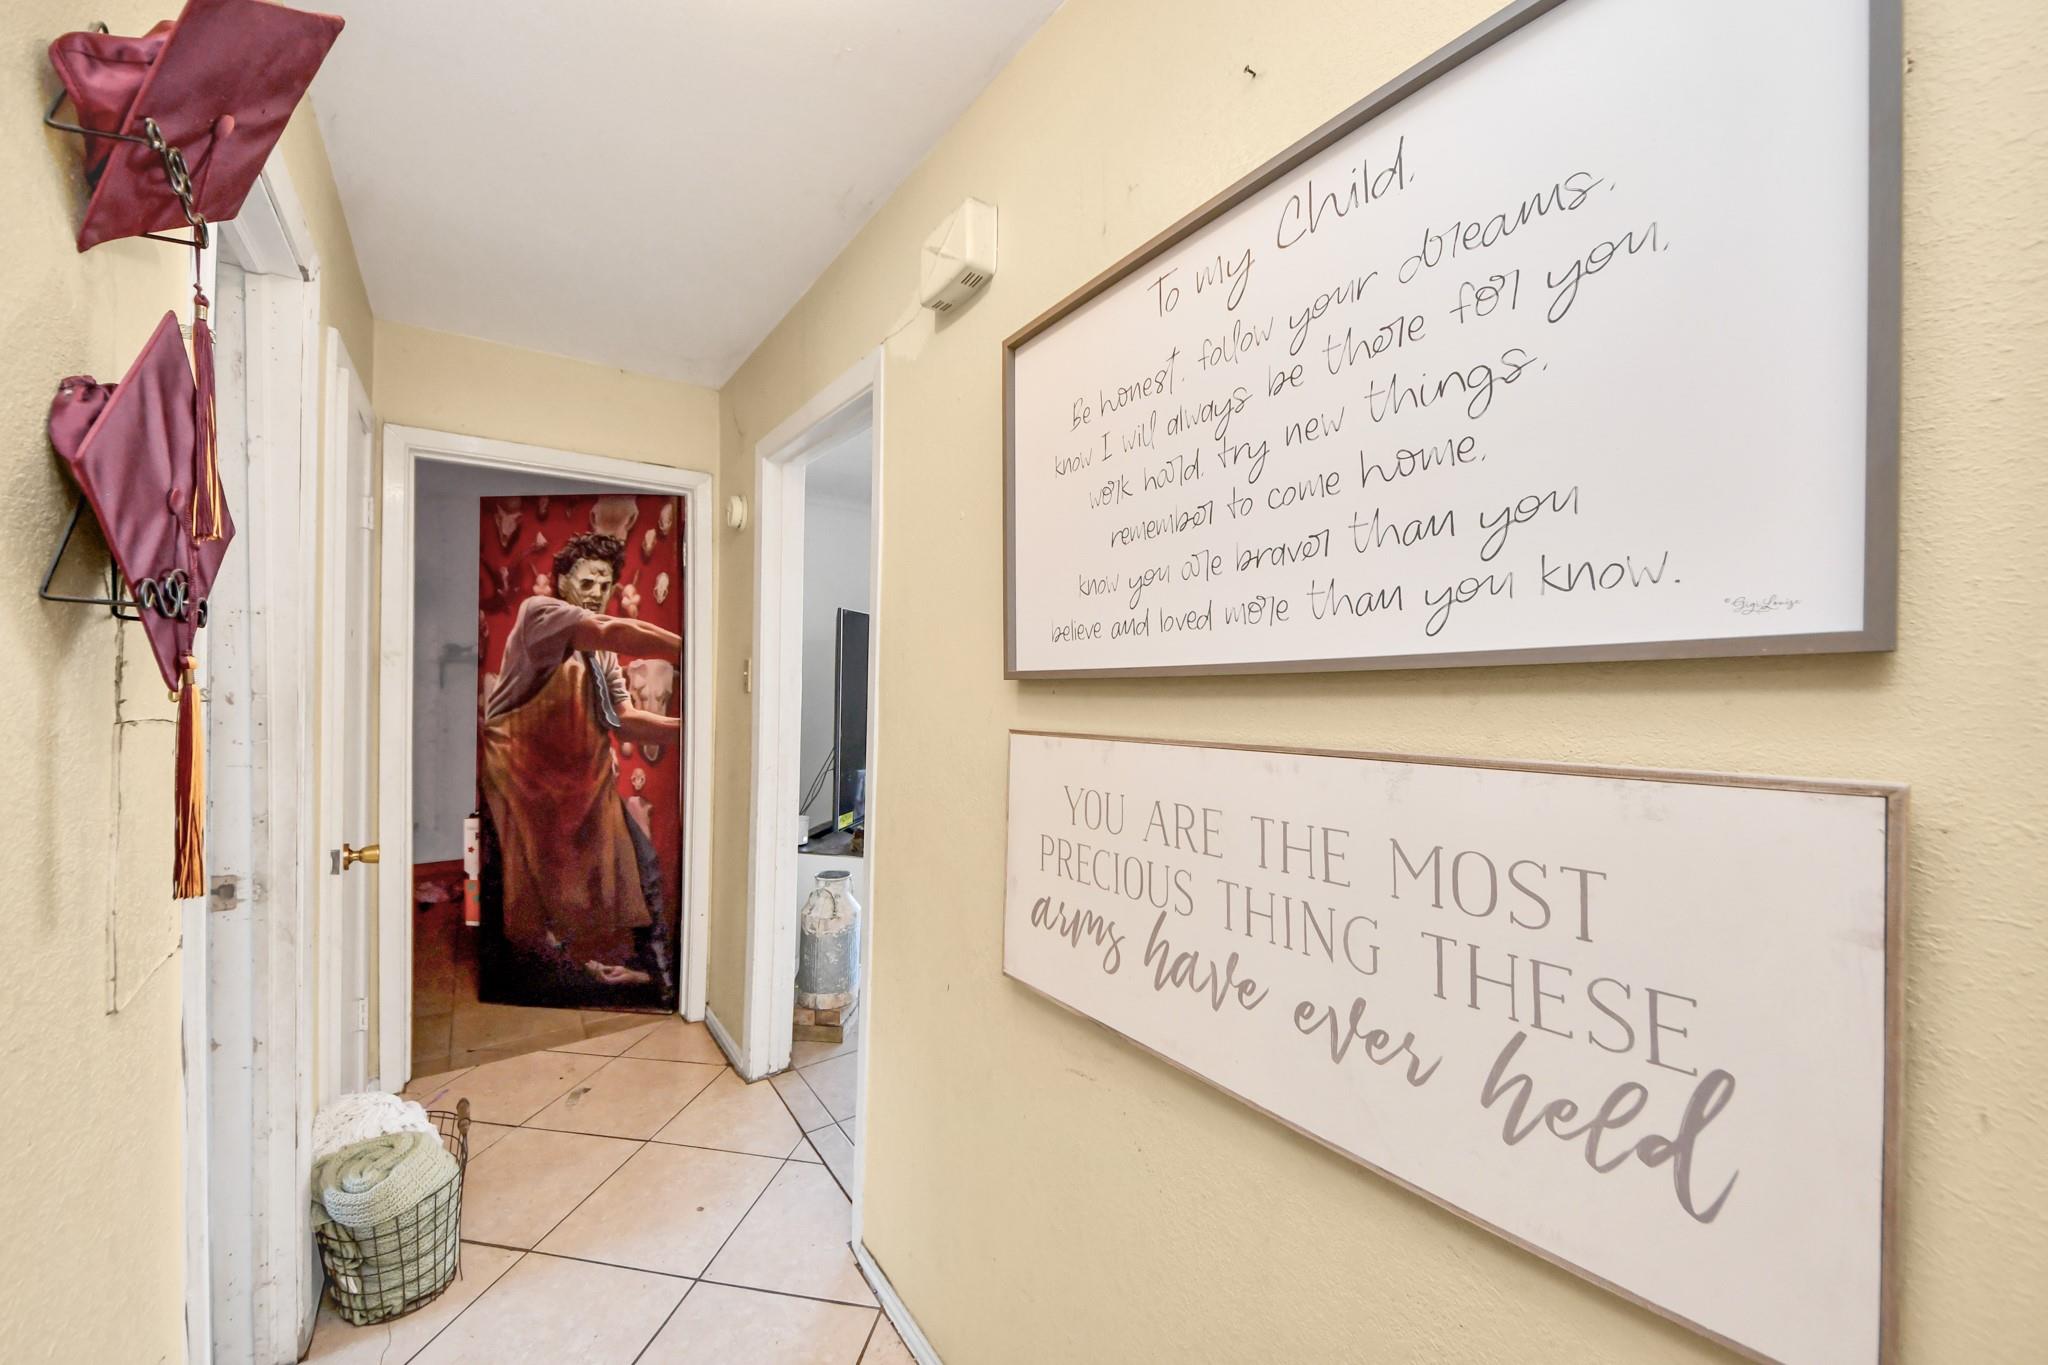 To my Child,
Be honest, follow your dreams,
know I will always be there for you,
work hard, try new things,
remember to come home,
know you are braver than you
believe and loved more than you know.
©Gigi Louise
YOU ARE THE MOST
PRECIOUS THING THESE
arms have ever held